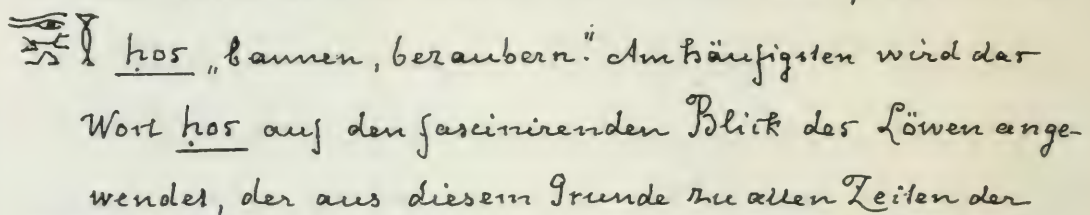 ḥos „bannen, bezaubern“. Am häufigsten wird das
Wort ḥos auf den fascinirenden Blick des Löwen ange-
wendet, der aus diesem Grunde zu allen Zeiten der